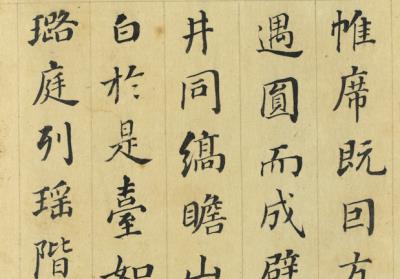 帷席既囙方
遇圓而成璧
井同縞瞻山
白於是臺如
璐庭列瑶階